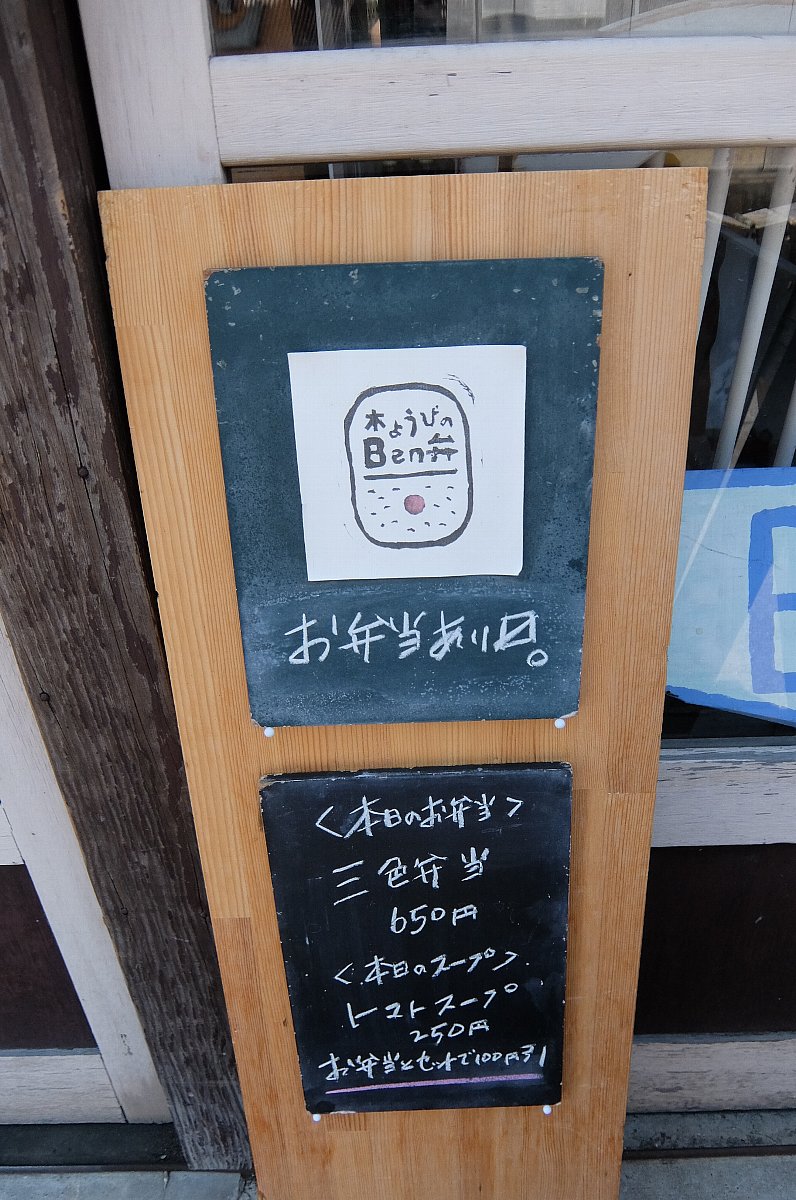 木ようびの
Ben弁
お弁当あり〼。
〈本日のお弁当〉
三色弁当
650円
〈本日のスープ〉
トマトスープ
250円
お弁当とセットで100円引